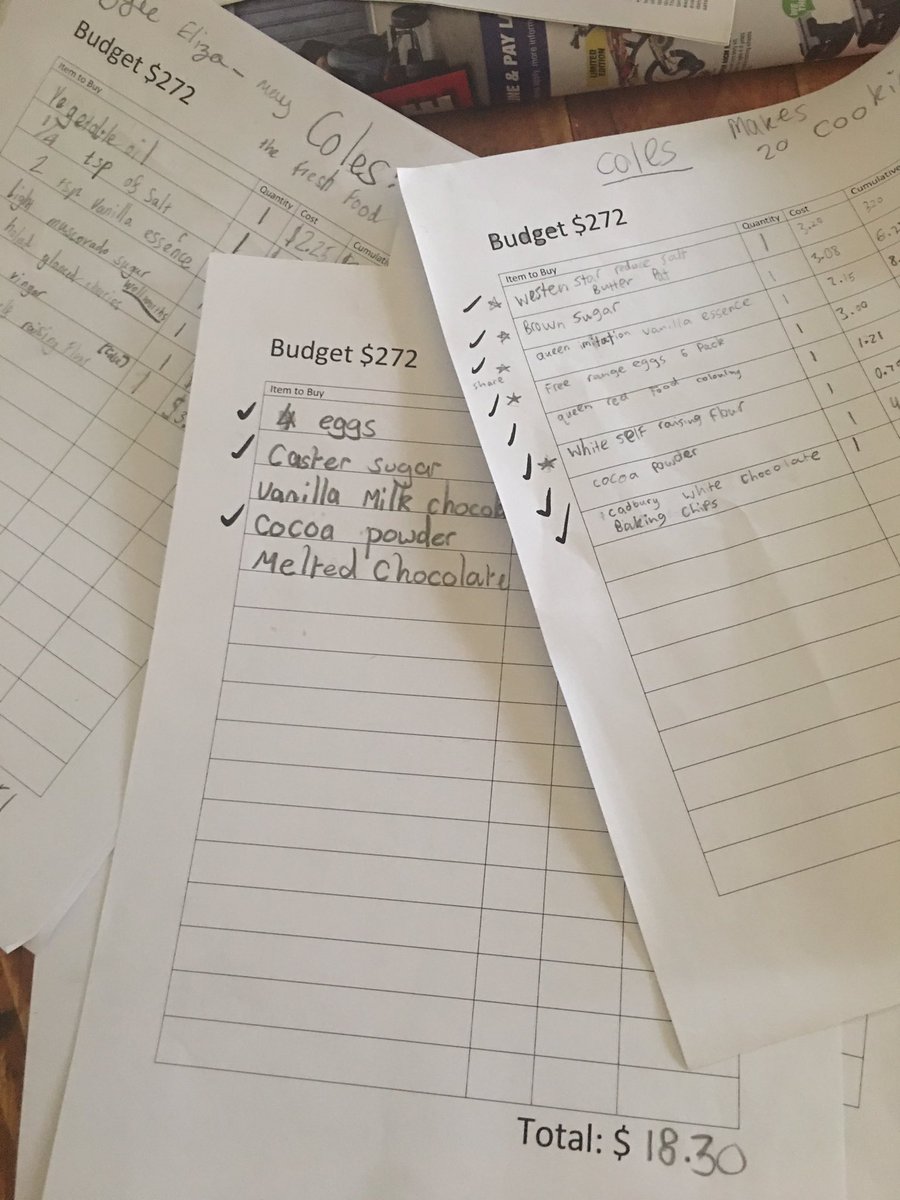 Eliza - may
Coles
the fresh food
Budget $272
Item to Buy
Quantity
Cost
Vegetable oil
1
$2.25
1/4 tsp of salt
1
2 tsp vanilla essence
light muscovado sugar
1
glaced cherries
1
raising flour
1
Budget $272
Item to Buy
4 eggs
Caster sugar
Vanilla Milk chocol
Cocoa powder
Melted Chocolate
Total: $ 18.30
Coles
Makes
20 Cooki
Budget $272
Item to Buy
Quantity
Cost
Cumulative
Westen star reduce salt
Butter Pat
1
3.20
320
Brown sugar
1
3.08
queen imitation vanilla essence
1
2.15
share
Free range eggs 6 Pack
1
3.00
queen red food colouring
1
1.21
White self raising flour
1
cocoa powder
1
cadbury white chocolate
Baking Chips
1
& PAY L
LIMITED
EDITION